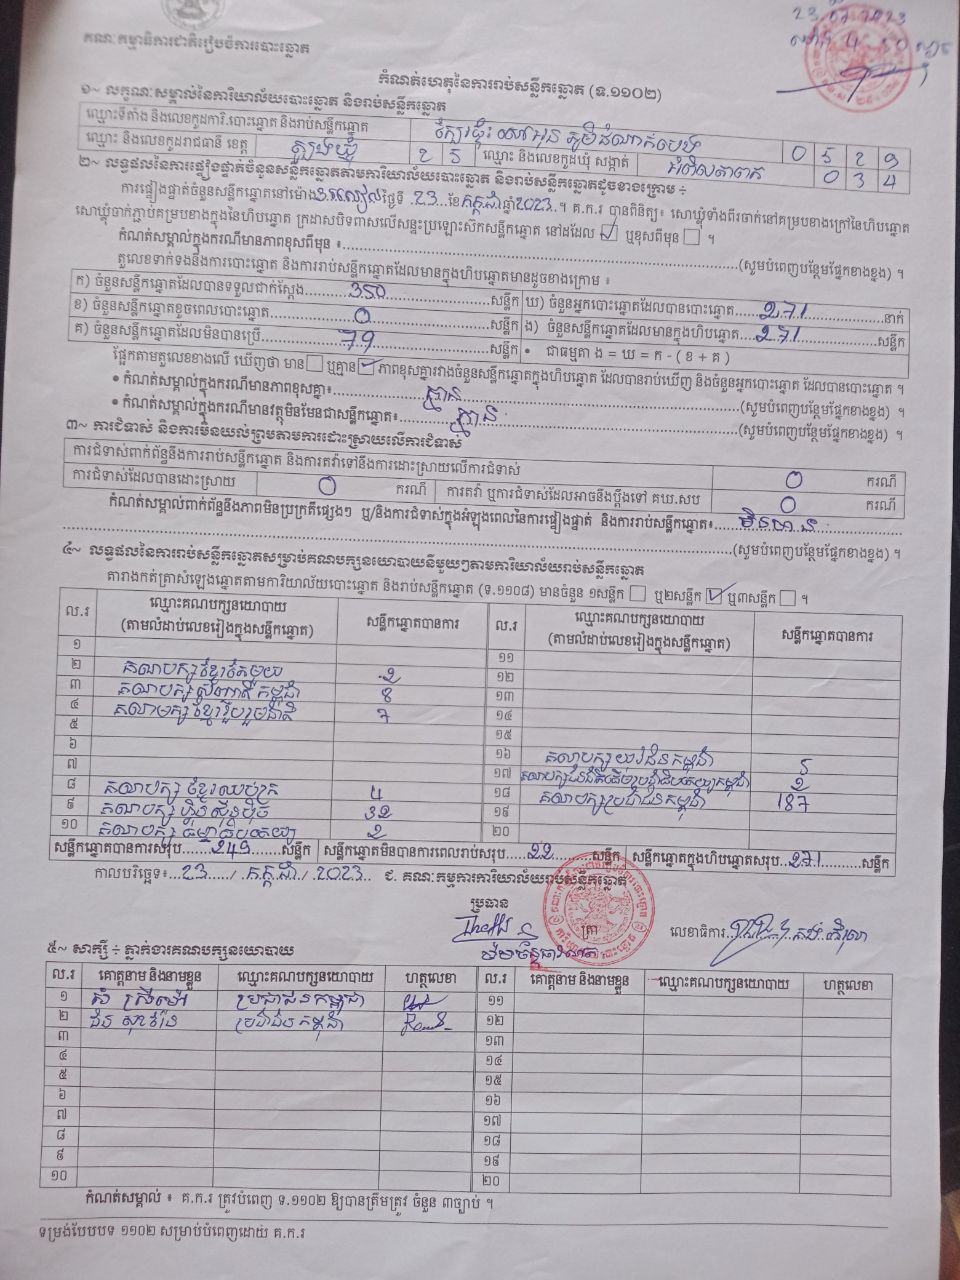 23.07.2023
គណៈកម្មាធិការជាតិរៀបចំការបោះឆ្នោត
កំណត់ហេតុនៃការរាប់សន្លឹកឆ្នោត (ទ.១១០២)
១~ លក្ខណៈសម្គាល់នៃការិយាល័យបោះឆ្នោត និងរាប់សន្លឹកឆ្នោត
ឈ្មោះទីតាំង និងលេខកូដការិ.បោះឆ្នោត និងរាប់សន្លឹកឆ្នោត 0 5 2 9
ឈ្មោះ និងលេខកូដរាជធានី ខេត្ត ត្បូងឃ្មុំ 2 5 ឈ្មោះ និងលេខកូដឃុំ សង្កាត់ អំពិលតាពក 0 3 4
២~ លទ្ធផលនៃការផ្ទៀងផ្ទាត់ចំនួនសន្លឹកឆ្នោតតាមការិយាល័យបោះឆ្នោត និងរាប់សន្លឹកឆ្នោតដូចខាងក្រោម ÷
ការផ្ទៀងផ្ទាត់ចំនួនសន្លឹកឆ្នោតនៅម៉ោង ថ្ងៃទី .23...ខែកក្កដាឆ្នាំ2023..។ គ.ក.រ បានពិនិត្យ៖ សោឃ្លុំទាំងពីរចាក់នៅគម្របខាងក្រៅនៃហិបឆ្នោត
សោឃ្លុំចាក់ភ្ជាប់គម្របខាងក្នុងនៃហិបឆ្នោត ក្រដាសបិទពាសលើសន្ទះប្រឡោះស៊កសន្លឹកឆ្នោត នៅដដែល ☑ ឬខុសពីមុន ☐ ។
កំណត់សម្គាល់ក្នុងករណីមានភាពខុសពីមុន ៖..........(សូមបំពេញបន្ថែមផ្នែកខាងខ្នង) ។
តួលេខទាក់ទងនឹងការបោះឆ្នោត និងការរាប់សន្លឹកឆ្នោតដែលមានក្នុងហិបឆ្នោតមានដូចខាងក្រោម ៖
ក) ចំនួនសន្លឹកឆ្នោតដែលបានទទួលជាក់ស្តែង..........350..........សន្លឹក ឃ) ចំនួនអ្នកបោះឆ្នោតដែលបានបោះឆ្នោត.....271..........នាក់
ខ) ចំនួនសន្លឹកឆ្នោតខូចពេលបោះឆ្នោត..........0..........សន្លឹក ង) ចំនួនសន្លឹកឆ្នោតដែលមានក្នុងហិបឆ្នោត....271..........សន្លឹក
គ) ចំនួនសន្លឹកឆ្នោតដែលមិនបានប្រើ..........79..........សន្លឹក • ជាធម្មតា ង = ឃ = ក - ( ខ + គ )
ផ្អែកតាមតួលេខខាងលើ ឃើញថា មាន ☐ ឬគ្មាន ☑ ភាពខុសគ្នារវាងចំនួនសន្លឹកឆ្នោតក្នុងហិបឆ្នោត ដែលបានរាប់ឃើញ និងចំនួនអ្នកបោះឆ្នោត ដែលបានបោះឆ្នោត ។
• កំណត់សម្គាល់ក្នុងករណីមានភាពខុសគ្នា៖..........គ្មាន..........(សូមបំពេញបន្ថែមផ្នែកខាងខ្នង) ។
• កំណត់សម្គាល់ក្នុងករណីមានវត្ថុមិនមែនជាសន្លឹកឆ្នោត៖..........គ្មាន..........(សូមបំពេញបន្ថែមផ្នែកខាងខ្នង) ។
៣~ ការជំទាស់ និងការមិនយល់ព្រមតាមការដោះស្រាយលើការជំទាស់
ការជំទាស់ពាក់ព័ន្ធនឹងការរាប់សន្លឹកឆ្នោត និងការតវ៉ាទៅនឹងការដោះស្រាយលើការជំទាស់ 0 ករណី
ការជំទាស់ដែលបានដោះស្រាយ 0 ករណី ការតវ៉ា ឬការជំទាស់ដែលអាចនឹងប្តឹងទៅ គឃ.សប 0 ករណី
កំណត់សម្គាល់ពាក់ព័ន្ធនឹងភាពមិនប្រក្រតីផ្សេងៗ ឬ/និងការជំទាស់ក្នុងអំឡុងពេលនៃការផ្ទៀងផ្ទាត់ និងការរាប់សន្លឹកឆ្នោត៖.....មិនមាន
..........(សូមបំពេញបន្ថែមផ្នែកខាងខ្នង) ។
៤~ លទ្ធផលនៃការរាប់សន្លឹកឆ្នោតសម្រាប់គណបក្សនយោបាយនីមួយៗតាមការិយាល័យរាប់សន្លឹកឆ្នោត
តារាងកត់ត្រាសំឡេងឆ្នោតតាមការិយាល័យបោះឆ្នោត និងរាប់សន្លឹកឆ្នោត (ទ.១១០៨) មានចំនួន ១សន្លឹក ☐ ឬ២សន្លឹក ☑ ឬ៣សន្លឹក ☐ ។
ល.រ ឈ្មោះគណបក្សនយោបាយ (តាមលំដាប់លេខរៀងក្នុងសន្លឹកឆ្នោត) សន្លឹកឆ្នោតបានការ ល.រ ឈ្មោះគណបក្សនយោបាយ (តាមលំដាប់លេខរៀងក្នុងសន្លឹកឆ្នោត) សន្លឹកឆ្នោតបានការ
១ ១១
២ គណបក្សខ្មែរតែមួយ 2 ១២
៣ គណបក្ស កម្ពុជា 8 ១៣
៤ គណបក្សខ្មែររួបរួមជាតិ 7 ១៤
៥ ១៥
៦ ១៦ គណបក្សយុវជនកម្ពុជា 5
៧ ១៧ 2
៨ គណបក្ស ខ្មែរឈប់ក្រ 4 ១៨ គណបក្សប្រជាជនកម្ពុជា 187
៩ គណបក្ស ហ្វ៊ុនស៊ិនប៉ិច 32 ១៩
១០ គណបក្ស ធម្មាធិបតេយ្យ 2 ២០
សន្លឹកឆ្នោតបានការសរុប.......249.......សន្លឹក សន្លឹកឆ្នោតមិនបានការពេលរាប់សរុប.....22..........សន្លឹក សន្លឹកឆ្នោតក្នុងហិបឆ្នោតសរុប..271..........សន្លឹក
កាលបរិច្ឆេទ៖...23...../.កក្កដា./.2023.. ជ. គណៈកម្មការការិយាល័យរាប់សន្លឹកឆ្នោត
ប្រធាន
ត្រា លេខាធិការ
៥~ សាក្សី ÷ ភ្នាក់ងារគណបក្សនយោបាយ
ល.រ គោត្តនាម និងនាមខ្លួន ឈ្មោះគណបក្សនយោបាយ ហត្ថលេខា ល.រ គោត្តនាម និងនាមខ្លួន ឈ្មោះគណបក្សនយោបាយ ហត្ថលេខា
១ ប្រជាជនកម្ពុជា ១១
២ ប្រជាជនកម្ពុជា ១២
៣ ១៣
៤ ១៤
៥ ១៥
៦ ១៦
៧ ១៧
៨ ១៨
៩ ១៩
១០ ២០
កំណត់សម្គាល់ ៖ គ.ក.រ ត្រូវបំពេញ ទ.១១០២ ឱ្យបានត្រឹមត្រូវ ចំនួន ៣ច្បាប់ ។
ទម្រង់បែបបទ ១១០២ សម្រាប់បំពេញដោយ គ.ក.រ